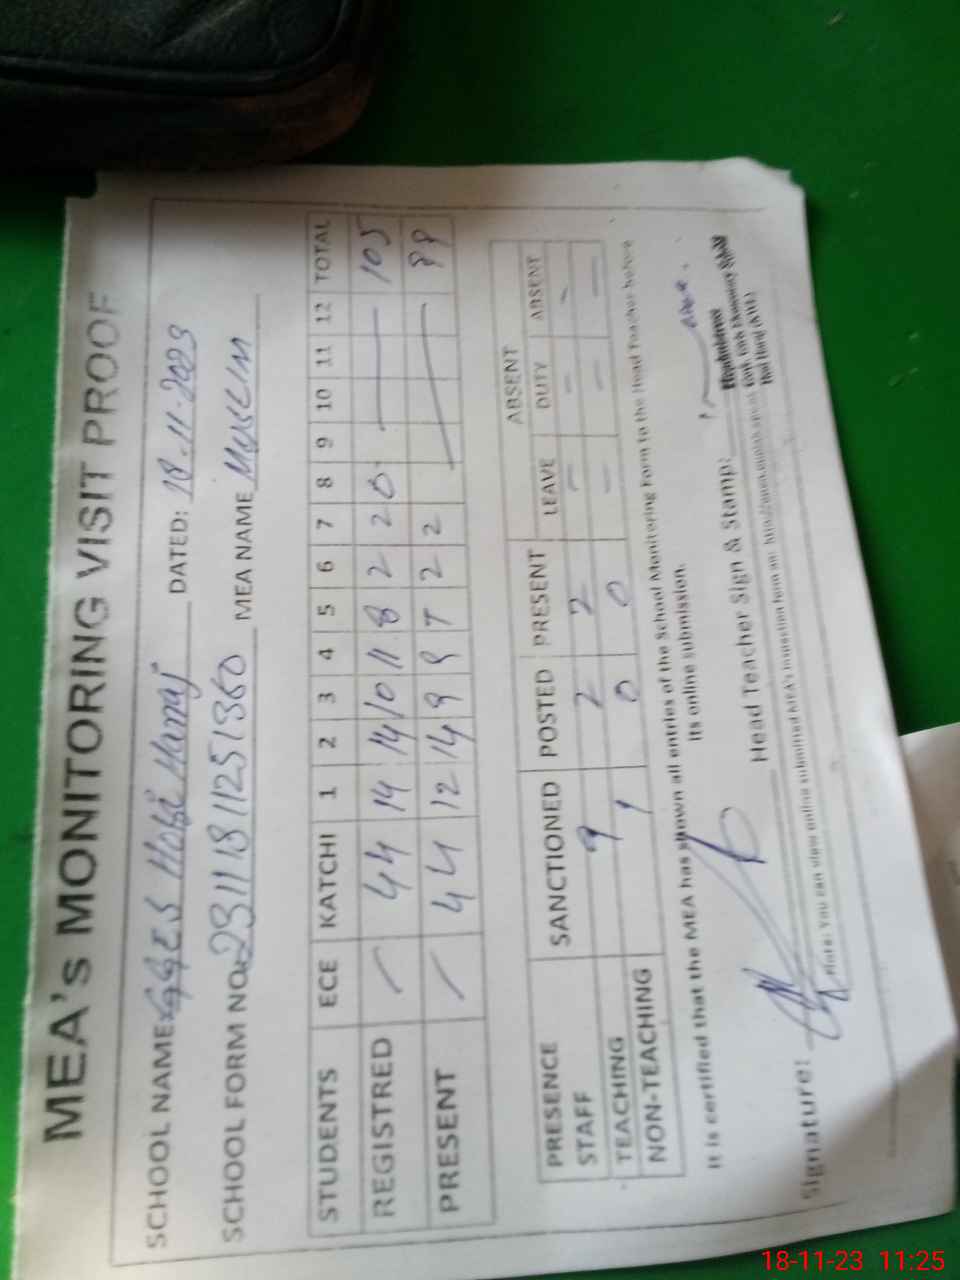 MEA's MONITORING VISIT PROOF
SCHOOL NAME GGES Hobi Manaj DATED: 18.11.2023
SCHOOL FORM NO. 23111811251360 MEA NAME MUSLIM
STUDENTS ECE KATCHI 1 2 3 4 5 6 7 8 9 10 11 12 TOTAL
REGISTRED / 44 14 14 10 11 8 2 2 0 — 105
PRESENT / 44 12 14 9 9 7 2 2 — 99
ABSENT
PRESENCE SANCTIONED POSTED PRESENT LEAVE DUTY ABSENT
STAFF 9 2 2 – – –
TEACHING 1 0 0 – – –
NON-TEACHING
It is certified that the MEA has shown all entries of the School Monitoring Form to the Head Teacher before
its online submission.
Signature: Head Teacher Sign & Stamp:
Note: You can view online submitted MEA's inspection form on:
18-11-23 11:25